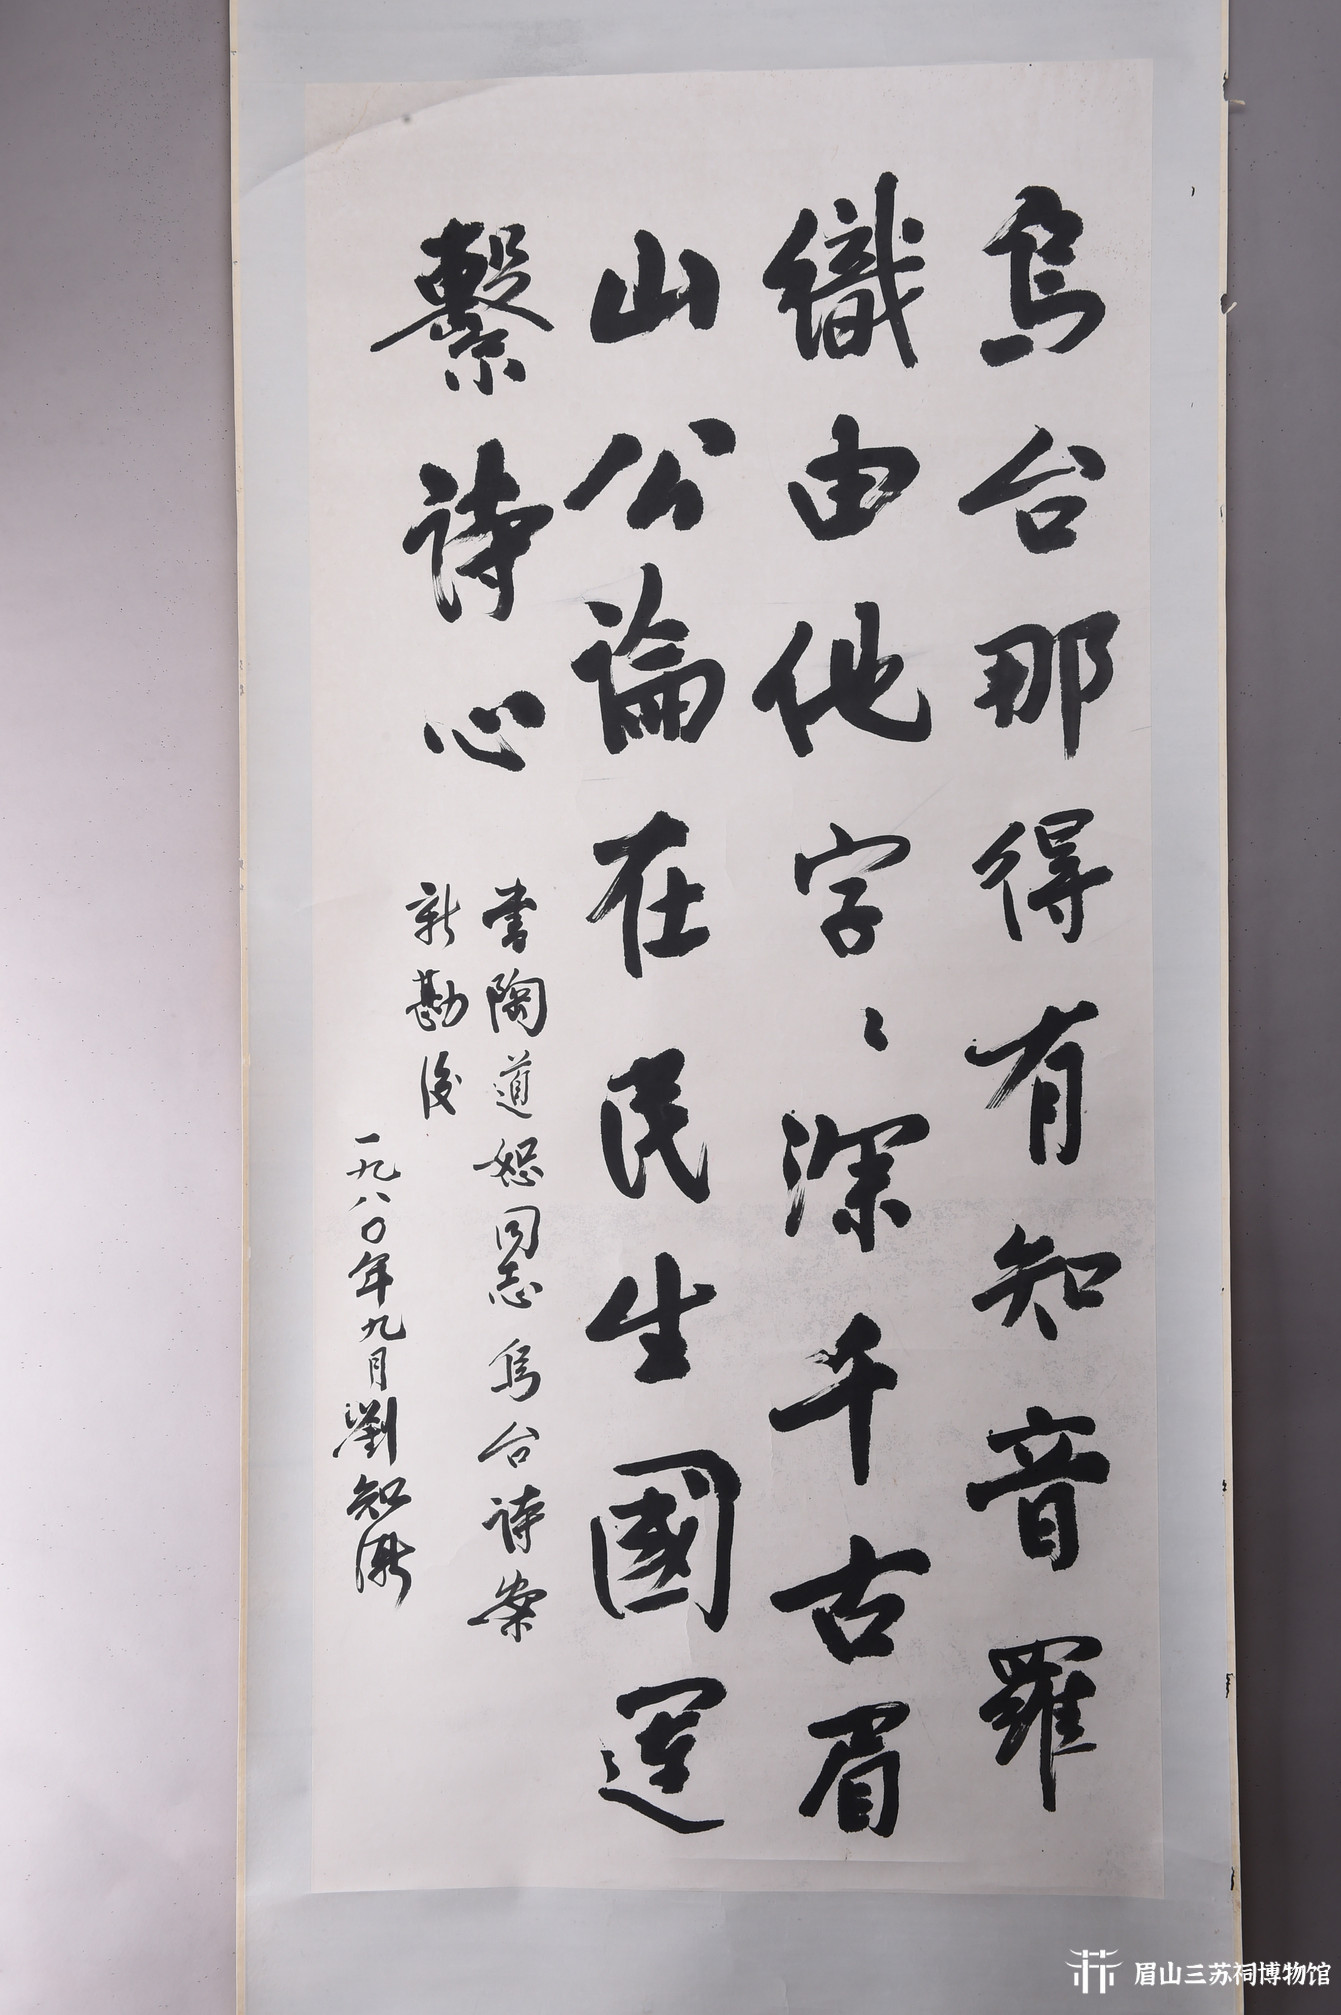 烏台那得有知音羅
織由他字〻深千古眉
山公論在民生國運
繫詩心
書陶道恕同志烏台诗案
新勘後
一九八〇年九月劉知漸
眉山三苏祠博物馆